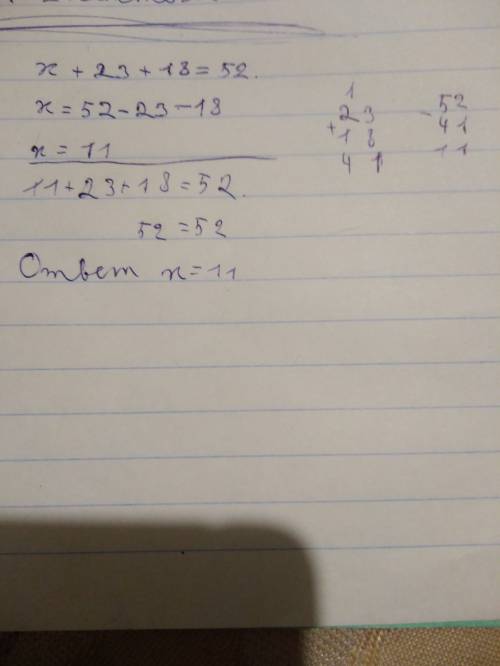 x + 23 + 18 = 52.
x = 52 - 23 - 18
x = 11
11 + 23 + 18 = 52.
52 = 52
Ответ x = 11
1
23
+
18
41
52
-
41
11